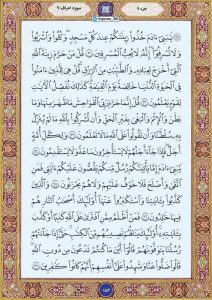 جزء ۸
سوره اعراف ۷
يَٰبَنِيٓ ءَادَمَ خُذُوا۟ زِينَتَكُمْ عِندَ كُلِّ مَسْجِدٍ وَكُلُوا۟ وَٱشْرَبُوا۟
وَلَا تُسْرِفُوٓا۟ إِنَّهُۥ لَا يُحِبُّ ٱلْمُسْرِفِينَ ۝ قُلْ مَنْ حَرَّمَ زِينَةَ ٱللَّهِ
ٱلَّتِيٓ أَخْرَجَ لِعِبَادِهِۦ وَٱلطَّيِّبَٰتِ مِنَ ٱلرِّزْقِ قُلْ هِيَ لِلَّذِينَ ءَامَنُوا۟
فِي ٱلْحَيَوٰةِ ٱلدُّنْيَا خَالِصَةً يَوْمَ ٱلْقِيَٰمَةِ كَذَٰلِكَ نُفَصِّلُ ٱلْءَايَٰتِ
لِقَوْمٍ يَعْلَمُونَ ۝ قُلْ إِنَّمَا حَرَّمَ رَبِّيَ ٱلْفَوَٰحِشَ مَا ظَهَرَ مِنْهَا وَمَا
بَطَنَ وَٱلْإِثْمَ وَٱلْبَغْيَ بِغَيْرِ ٱلْحَقِّ وَأَن تُشْرِكُوا۟ بِٱللَّهِ مَا لَمْ يُنَزِّلْ
بِهِۦ سُلْطَٰنًا وَأَن تَقُولُوا۟ عَلَى ٱللَّهِ مَا لَا تَعْلَمُونَ ۝ وَلِكُلِّ أُمَّةٍ
أَجَلٌ فَإِذَا جَآءَ أَجَلُهُمْ لَا يَسْتَأْخِرُونَ سَاعَةً وَلَا يَسْتَقْدِمُونَ ۝
يَٰبَنِيٓ ءَادَمَ إِمَّا يَأْتِيَنَّكُمْ رُسُلٌ مِّنكُمْ يَقُصُّونَ عَلَيْكُمْ ءَايَٰتِي فَمَنِ
ٱتَّقَىٰ وَأَصْلَحَ فَلَا خَوْفٌ عَلَيْهِمْ وَلَا هُمْ يَحْزَنُونَ ۝ وَٱلَّذِينَ
كَذَّبُوا۟ بِـَٔايَٰتِنَا وَٱسْتَكْبَرُوا۟ عَنْهَآ أُو۟لَٰٓئِكَ أَصْحَٰبُ ٱلنَّارِ هُمْ
فِيهَا خَٰلِدُونَ ۝ فَمَنْ أَظْلَمُ مِمَّنِ ٱفْتَرَىٰ عَلَى ٱللَّهِ كَذِبًا أَوْ كَذَّبَ
بِـَٔايَٰتِهِۦٓ أُو۟لَٰٓئِكَ يَنَالُهُمْ نَصِيبُهُم مِّنَ ٱلْكِتَٰبِ حَتَّىٰٓ إِذَا جَآءَتْهُمْ
رُسُلُنَا يَتَوَفَّوْنَهُمْ قَالُوٓا۟ أَيْنَ مَا كُنتُمْ تَدْعُونَ مِن دُونِ ٱللَّهِ
قَالُوا۟ ضَلُّوا۟ عَنَّا وَشَهِدُوا۟ عَلَىٰٓ أَنفُسِهِمْ أَنَّهُمْ كَانُوا۟ كَٰفِرِينَ ۝